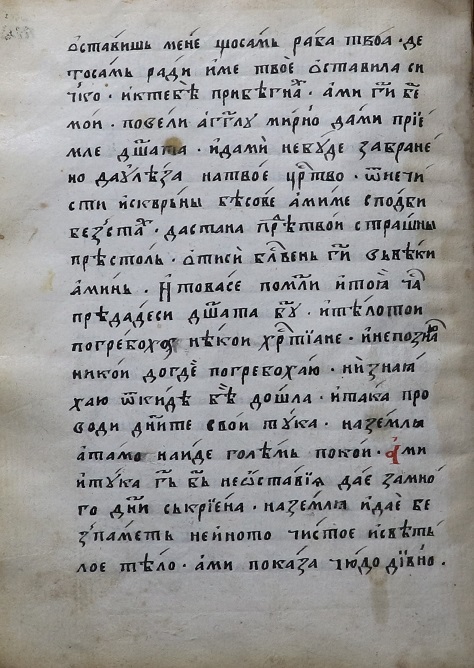 ѻставишь мене щосамь раба твоа · де
тосамь ради име твое ѻставила си
чко · иктебѣ прибѣгна · ами ги бе
мои · повели агглу мирно дами прїе
мле дшата · идами небуде забране
но даулѣза натвое црство · ѿнечи
сти искврьны бѣсове амиме сподби
без̾ста · дастана прѣтвои страшны
прѣстоль · ѻтиси блвень ги въвѣки
аминь · И товасе помли итога та
прѣдадеси дшата бгу · итѣлотои
погребохѫ нѣкои хртїане · инепозна
никои догде погребохаю · низнаю
хаю ѿкидѣ бѣ дошла · итака про
води дните свои тука · наземлѧ
атамо наиде голѣмь покои · Ами
итука гь бь неѡставїя дае замно
го дни скрїена · наземлѧ идае бе
з̾паметь нейното чистое исветь
лое тѣло · ами показа чюдо дївно ·